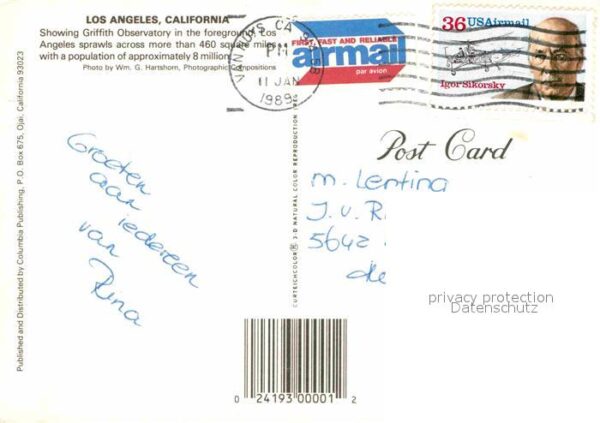 LOS ANGELES, CALIFORNIA
Showing Griffith Observatory in the foreground, Los
Angeles sprawls across more than 460 square miles
with a population of approximately 8 million.
Photo by Wm. G. Hartshorn, Photographic Compositions
VAN NUYS CA
PM
11 JAN
1989
FIRST, FAST AND RELIABLE
airmail
par avion
36 USAirmail
Igor Sikorsky
Post Card
Groeten
aan
iedereen
van
Rina
M. Lentina
J. v. R
5642
de
privacy protection
Datenschutz
Published and Distributed by Columbia Publishing, P.O. Box 675, Ojai, California 93023
CURTEICHCOLOR® 3-D NATURAL COLOR REPRODUCTION
0 24193 00001 2